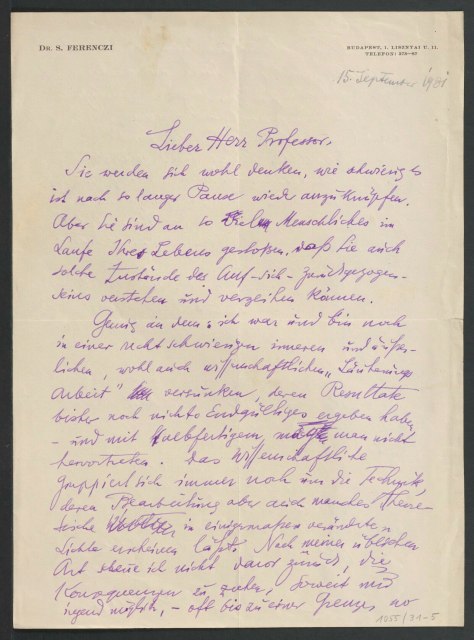 DR. S. FERENCZI
BUDAPEST, I. LISZNYAI U. 11.
TELEFON: 573—67
15. September 1931
Lieber Herr Professor,
Sie werden sich wohl denken, wie schwierig es
ist nach so langer Pause wieder anzuknüpfen.
Aber Sie sind an so vielem Menschliches im
Laufe Ihres Lebens gestoßen, daß Sie auch
solche Zustände des Auf-sich-zurückgezogen-
seins verstehen und verzeihen können.
Genug an dem: ich war und bin noch
in einer recht schwierigen inneren und äußer-
lichen, wohl auch wissenschaftlichen „Läuterungs-
arbeit" versunken, deren Resultate
bisher noch nichts Endgültiges ergeben haben,
– und mit Halbfertigem man nicht
hervortreten. Das Wissenschaftliche
gruppiert sich immer noch um die Technik,
deren Bearbeitung aber auch manches Theore-
tische in einigermaßen veränderten
Lichte erscheinen läßt. Nach meiner üblichen
Art scheue ich nicht davor zurück, die
Konsequenzen zu ziehen, soweit nur
irgend möglich, – oft bis zu einer Grenze, wo
1055/31-5